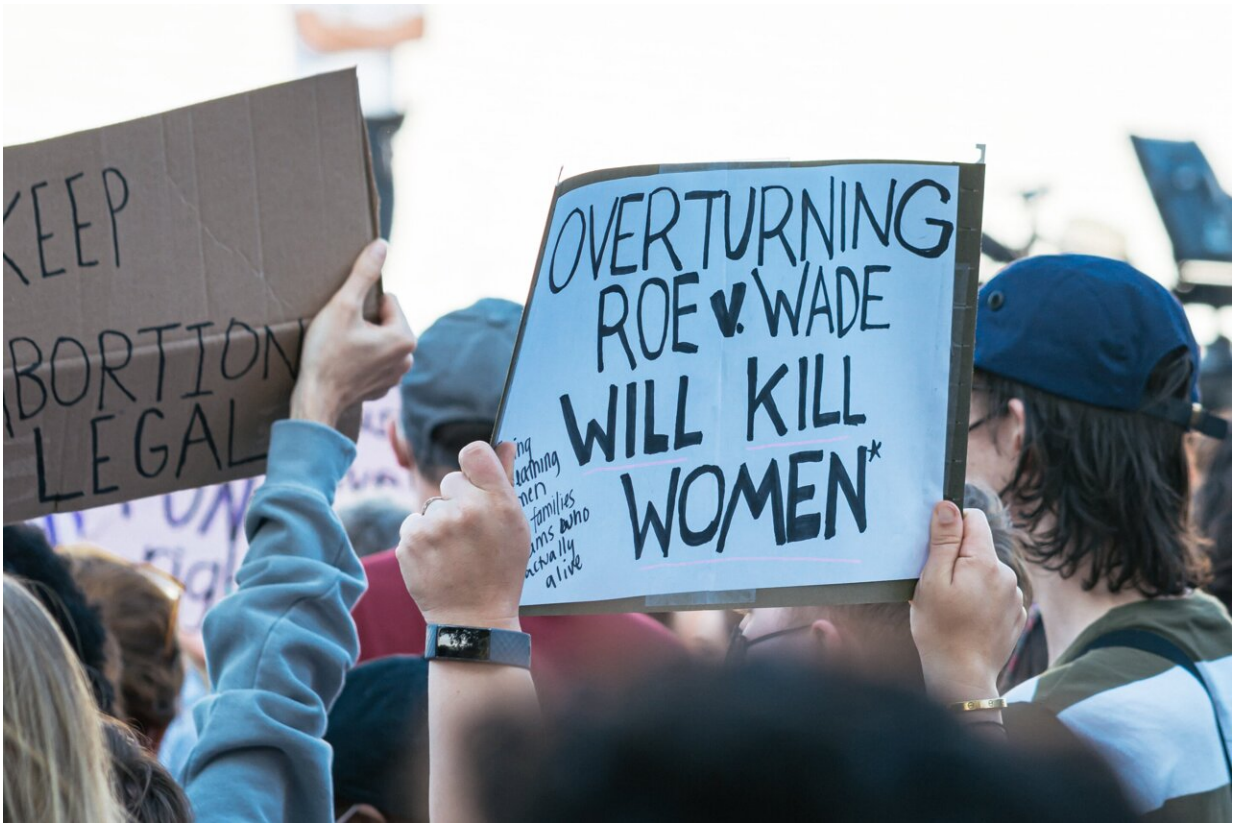 KEEP
ABORTION
LEGAL
OVERTURNING
ROE v. WADE
WILL KILL
WOMEN*
families
who
actually
alive